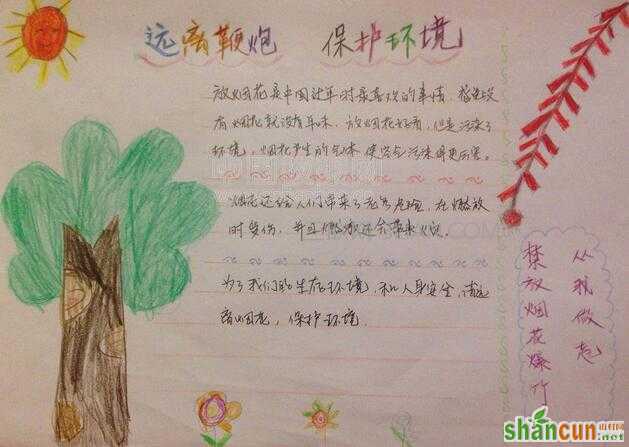 远离鞭炮 保护环境
放烟花是中国过年时最喜欢的事情，若是没
有烟花就没有年味。放烟花好看，但是污染了
环境，烟花产生的气体使空气污染得更厉害。
烟花还给人们带来了无穷危险，在燃放
时受伤，并且燃放还会带来火
为了我们的生存环境，和人身安全，请远
离烟花，保护环境。
从我做起
禁放烟花爆竹
shancun
.net